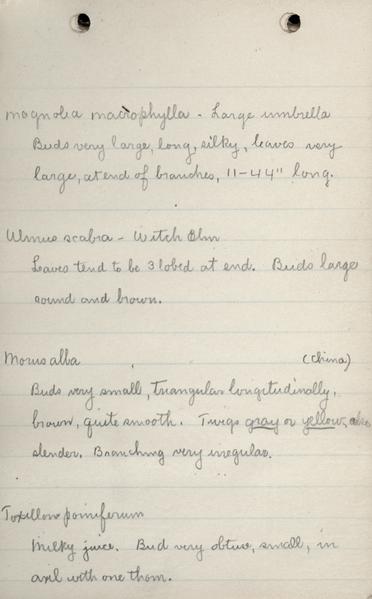 Magnolia macrophylla - Large umbrella
Buds very large, long, silky, leaves very
large, at end of branches, 11-44" long.
Ulmus scabra - Witch Elm
Leaves tend to be 3 lobed at end. Buds large
round and brown.
Morus alba (China)
Buds very small, triangular longitudinally,
brown, quite smooth. Twigs gray or yellow, also
slender. Branching very irregular.
Toxillon pomiferum
Milky juice. Bud very obtuse, small, in
axil with one thorn.